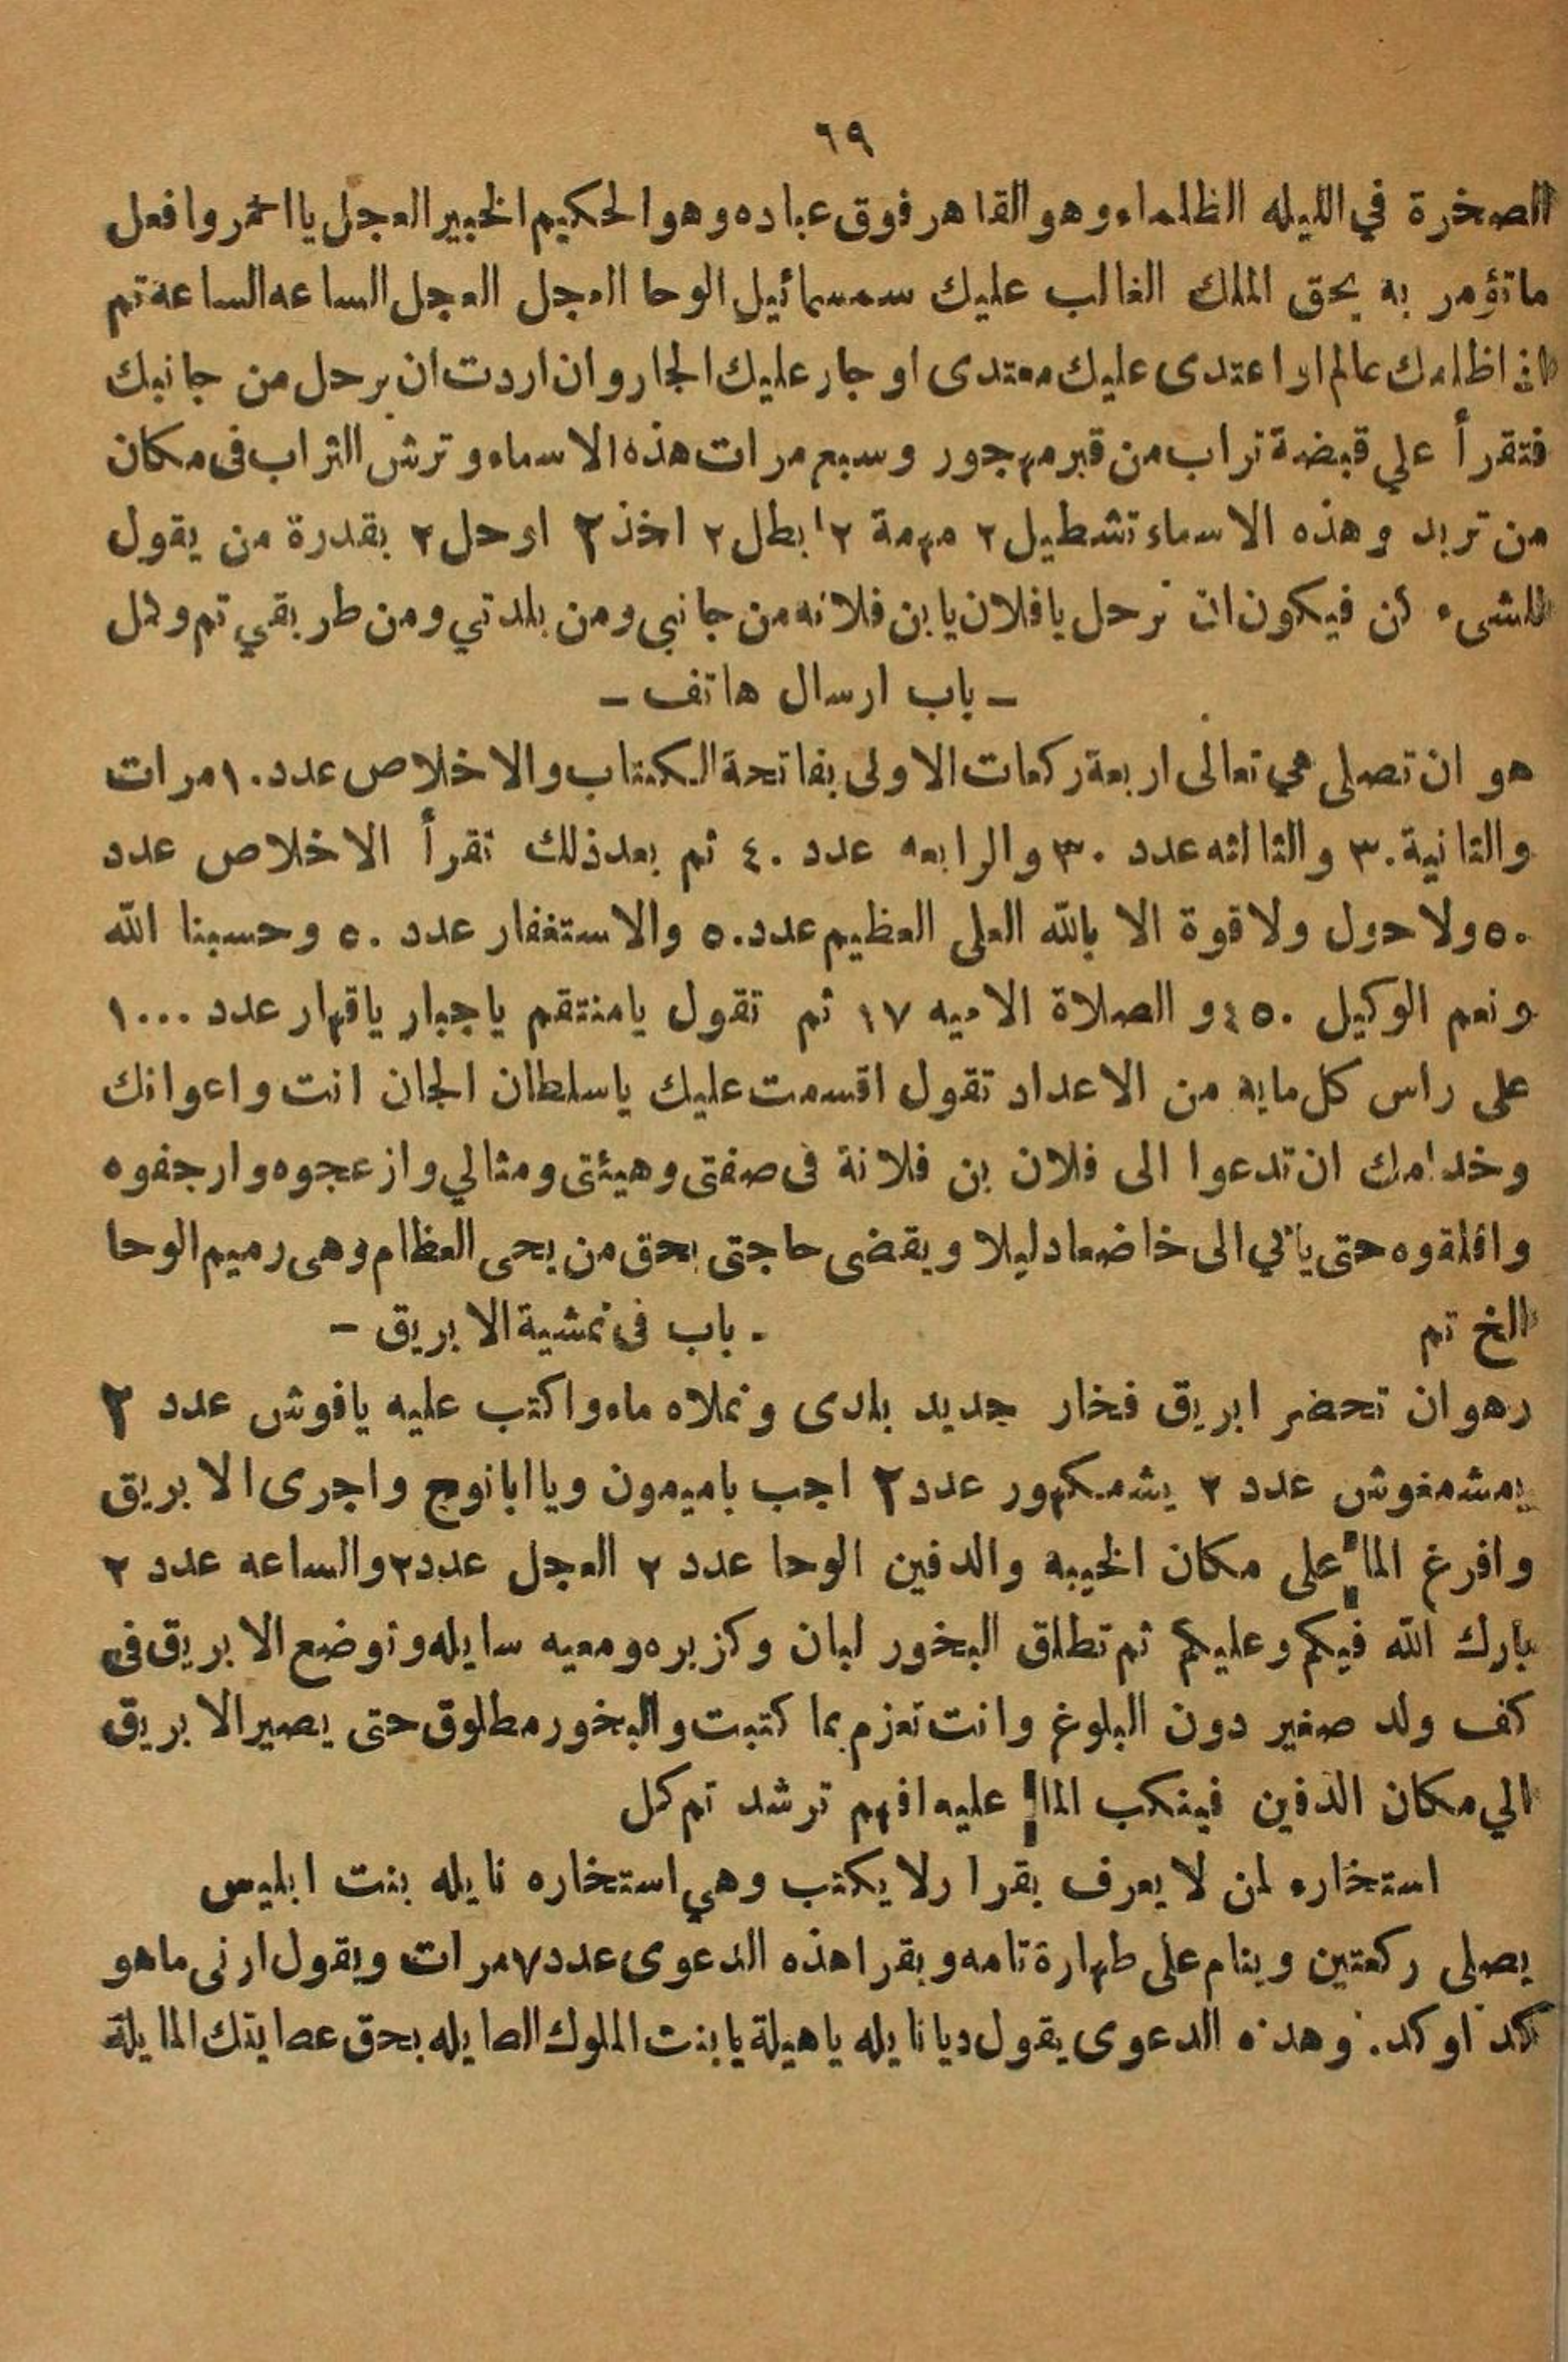 ٦٩
الصخرة في الليله الظلماء وهو القاهر فوق عباده وهو الحكيم الخبير العجل يا احمر وافعل
ما تؤمر به بحق الملك الغالب عليك سمسمائيل الوحا العجل العجل الساعه الساعة تم
اظلمك عالم او اعتدى عليك معتدى او جار عليك الجار وان اردت ان يرحل من جانبك
فتقرأ علي قبضة تراب من قبر مهجور وسبع مرات هذه الاسماء وترش التراب فى مكان
من تريد وهذه الاسماء تشطيل ٢ مهمة ٢ ابطل ٢ اخذ ٢ ارحل ٢ بقدرة من يقول
للشىء كن فيكون ان ترحل يا فلان يا بن فلانه من جانبى ومن بلدتي ومن طريقي تم وكل
ـ باب ارسال هاتف ـ
هو ان تصلى هي تعالى اربعة ركعات الاولى بفاتحة الكتاب والاخلاص عدد ١٠ مرات
والثانية ٣٠ والثالثه عدد ٣٠ والرابعه عدد ٤٠ ثم بعد ذلك تقرأ الاخلاص عدد
٥٠ ولا حول ولا قوة الا بالله العلى العظيم عدد ٥٠ والاستغفار عدد ٥٠ وحسبنا الله
ونعم الوكيل ٤٥٠ و الصلاة الاميه ١٧ ثم تقول يا منتقم يا جبار يا قهار عدد ١٠٠٠
على راس كل مايه من الاعداد تقول اقسمت عليك يا سلطان الجان انت واعوانك
وخدامك ان تدعوا الى فلان بن فلانة فى صفتى وهيئتى ومثالي وازعجوه وارجفوه
واقلقوه حتى ياتي الى خاضعا دليلا ويقضى حاجتى بحق من يحى العظام وهى رميم الوحا
الخ تم
ـ باب فى تمشية الابريق ـ
وهو ان تحضر ابريق فخار جديد بلدى وتملاه ماء واكتب عليه يافوش عدد ٢
يمشمغوش عدد ٢ يشمكهور عدد ٢ اجب ياميمون ويا ابا نوج واجرى الابريق
وافرغ الماء على مكان الخيبه والدفين الوحا عدد ٢ العجل عدد ٢ والساعه عدد ٢
بارك الله فيكم وعليكم ثم تطلق البخور لبان وكزبره ومعيه سايله وتوضع الابريق فى
كف ولد صغير دون البلوغ وانت تعزم بما كتبت والبخور مطلوق حتى يصير الابريق
الي مكان الدفين فينكب الماء عليه افهم ترشد تم كل
استخاره لمن لا يعرف يقرا ولا يكتب وهي استخاره نايله بنت ابليس
يصلى ركعتين وينام على طهارة تامه ويقرا هذه الدعوى عدد ٧ مرات ويقول ارنى ما هو
كد او كد. وهذه الدعوى يقول ديا نايله يا هيلة يا بنت الملوك الصايله بحق عصابتك المايلة